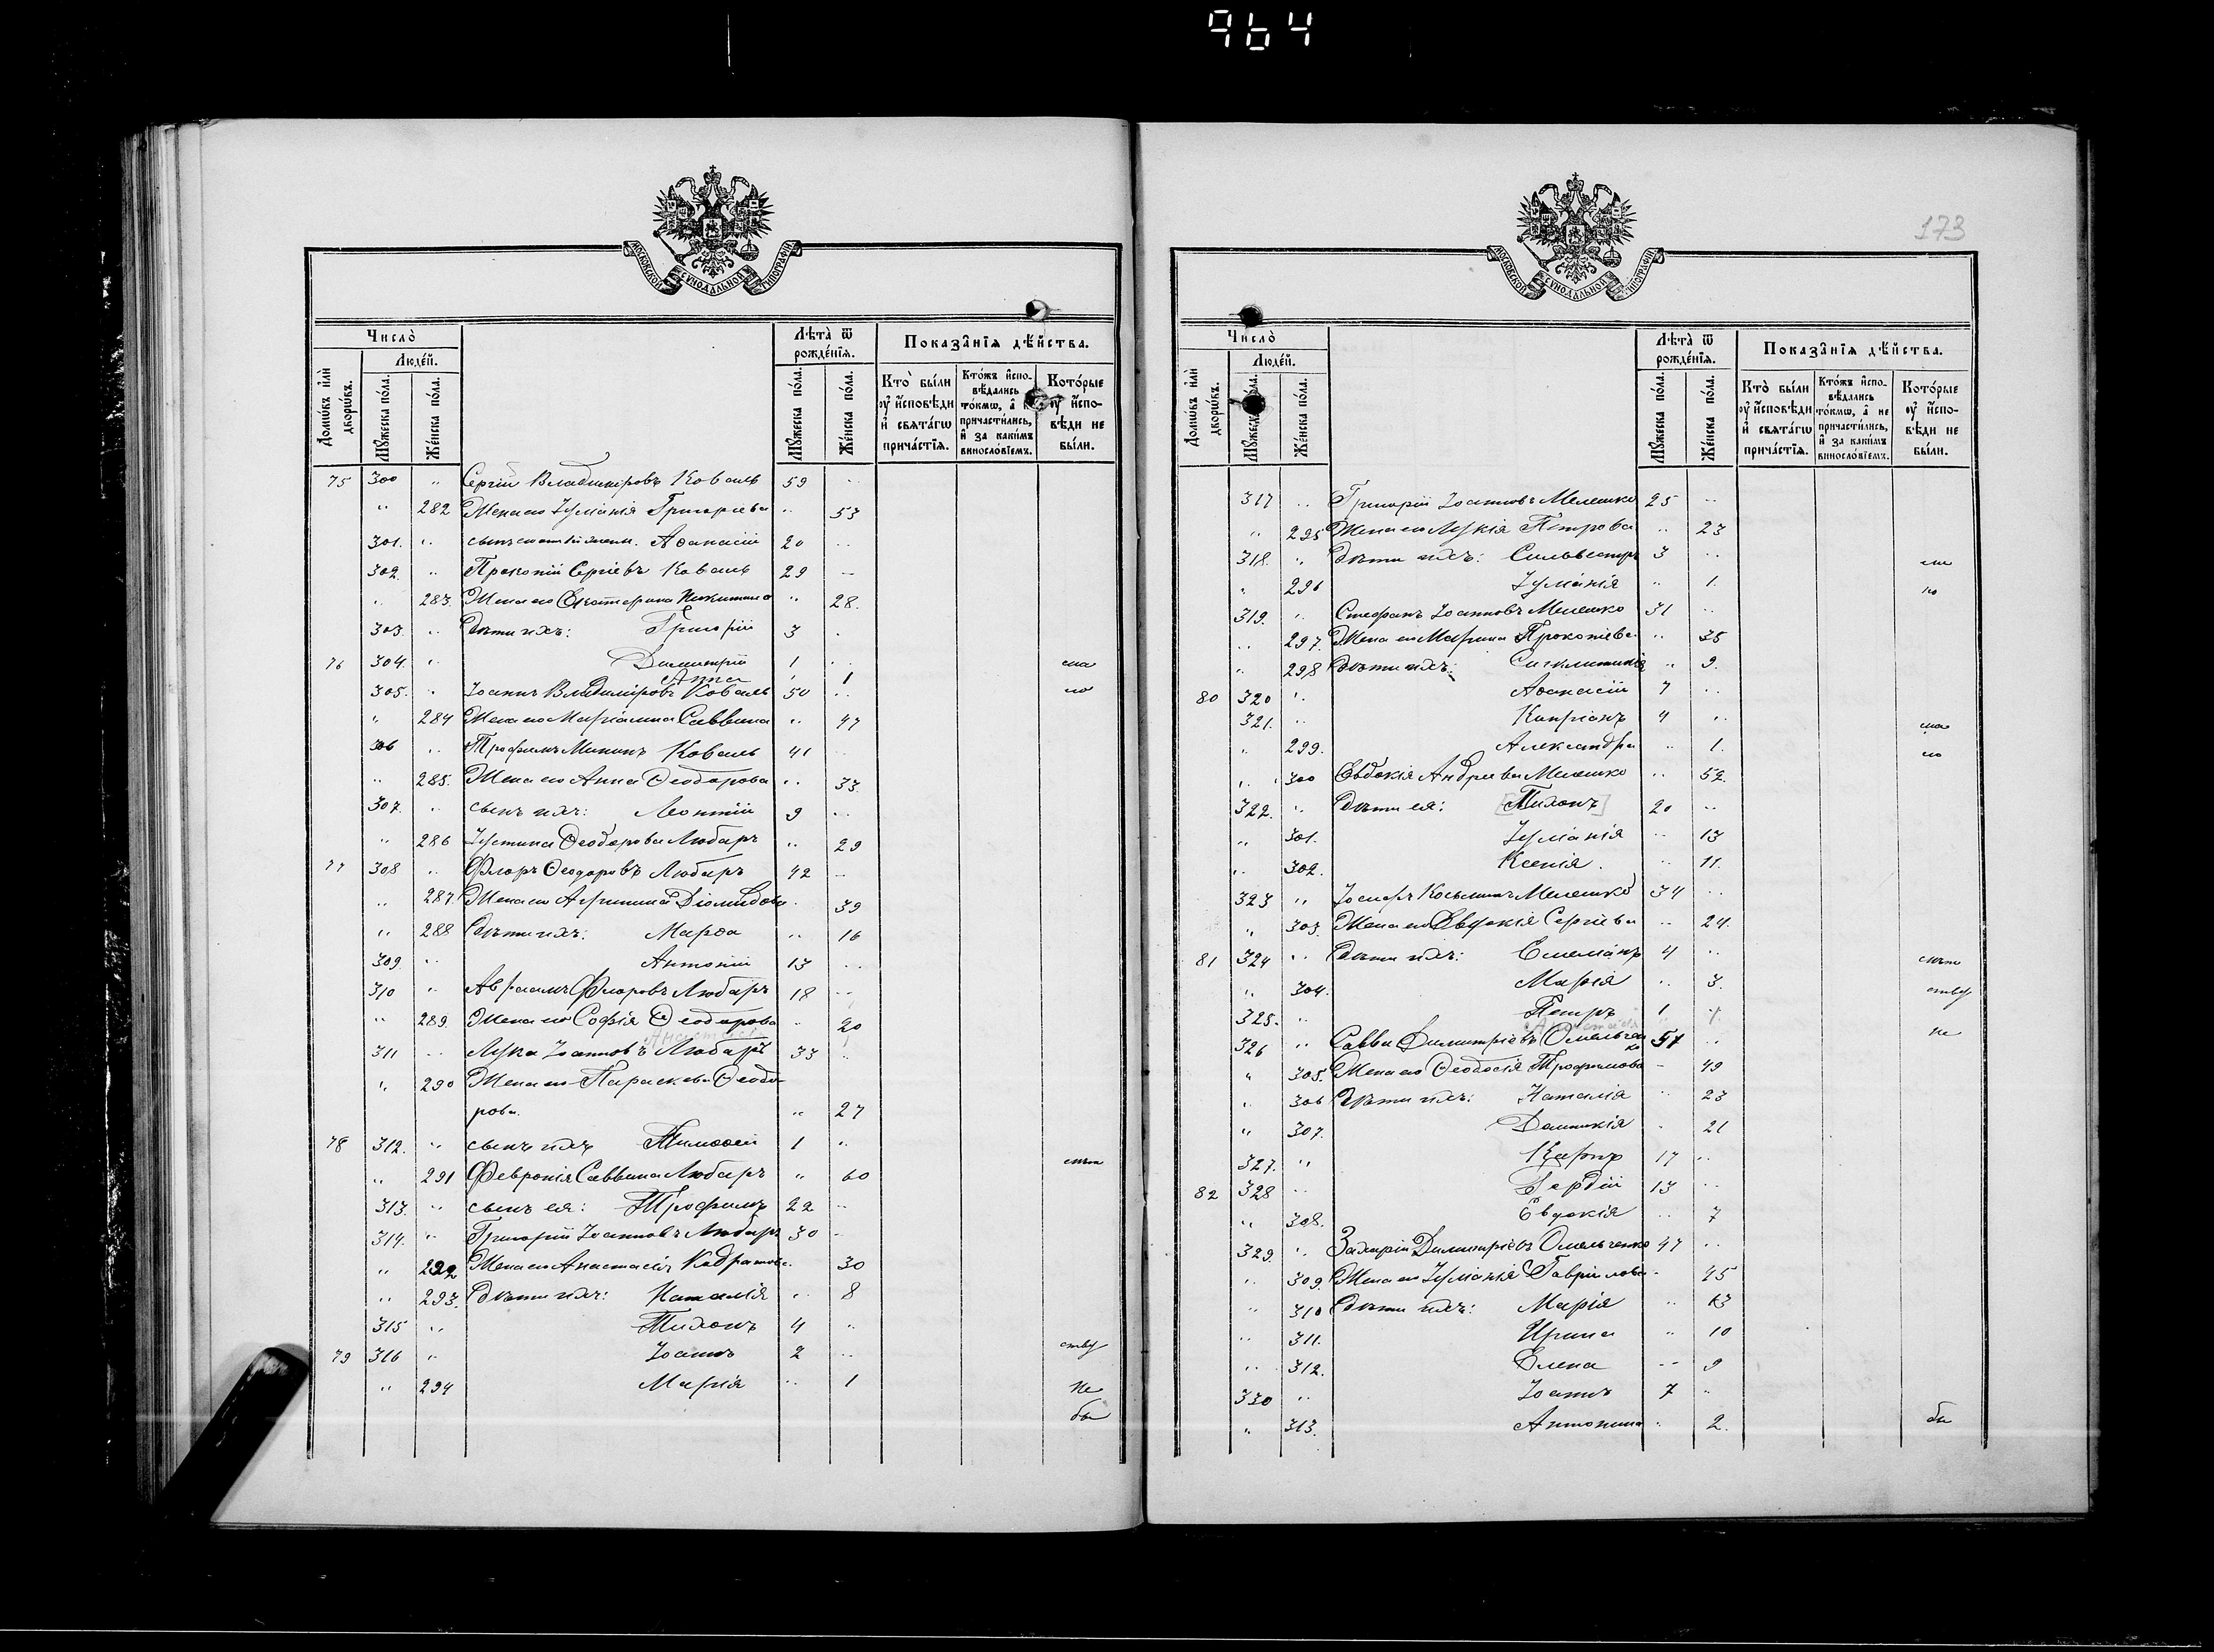 964
МОСКОВСКОЙ СѴНОДАЛЬНОЙ ТИПОГРАФІИ
Число̀
Людéй.
Домѡ́въ и҆лѝ дворѡ́въ.
Мꙋ́жеска по́ла.
Же́нска по́ла.
Лѣ́та ѿ рожде́нїѧ.
Мꙋ́жеска по́ла.
Же́нска по́ла.
Показа̑нїѧ дѣ́йства.
Кто̀ бы́ли ᲂу҆ и҆́сповѣди и҆ свѧта́гѡ прича́стїѧ.
Кто́жъ и҆спо-вѣ́дались то́кмѡ, а҆ не причасти́лись, и҆ за каки́мъ винослѡ́вїемъ.
Кото́рые ᲂу҆ и҆́спо-вѣди не бы́ли.
75 300 " Сергій Владиміровъ Коваль 59 "
" 282 Жена его Іуліанія Григоріева " 53
301. " Аѳанасій 20 "
302. " Прокопій Сергіевъ Коваль 29 "
" 283. Жена его Екатерина Никитина " 28.
303. " Дѣти ихъ: Григорій 3 "
76 304. " Димитрій 1 "
Анна " 1
305. " Іоаннъ Владиміровъ Коваль 50 "
" 284 Жена его Маріамна Саввина " 47
306 " Трофимъ Мининъ Коваль 41 "
" 285. Жена его Анна Ѳеодорова " 33
307. " сынъ ихъ: Леонтій 9 "
" 286 Іустина Ѳеодорова Любаръ " 29
77 308 " Флоръ Ѳеодоровъ Любаръ 42 "
" 287. Жена его Агрипина Діомидова " 39
" 288 Дѣти ихъ: Марѳа " 16
309 " Антоній 13 "
310 " Авраамъ Флоровъ Любаръ 18 "
" 289. Жена его Софія Ѳеодорова " 20
311 " Лука Іоанновъ Любаръ 33 "
" 290 Жена его Параскева Ѳеодо-
рова. " 27
78 312. " сынъ ихъ Тимоѳей 1 "
" 291 Февронія Саввина Любаръ " 60
313. " сынъ ея: Трофимъ 22 "
314. " Григорій Іоанновъ Любаръ 30 "
" 292 Жена его Анастасія Кодратова " 30
" 293. Дѣти ихъ: Наталія " 8
315 " Тихонъ 4 "
79 316 " Іоаннъ 2 " ству
" 294 Марія " 1 не
бы
173
МОСКОВСКОЙ СѴНОДАЛЬНОЙ ТИПОГРАФІИ
Число̀
Людéй.
Домѡ́въ и҆лѝ дворѡ́въ.
Мꙋ́жеска по́ла.
Же́нска по́ла.
Лѣ́та ѿ рожде́нїѧ.
Мꙋ́жеска по́ла.
Же́нска по́ла.
Показа̑нїѧ дѣ́йства.
Кто̀ бы́ли ᲂу҆ и҆́сповѣди и҆ свѧта́гѡ прича́стїѧ.
Кто́жъ и҆спо-вѣ́дались то́кмѡ, а҆ не причасти́лись, и҆ за каки́мъ винослѡ́вїемъ.
Кото́рые ᲂу҆ и҆́спо-вѣди не бы́ли.
317 " Григорій Іоанновъ Мелешко 25 "
" 295 Жена его Лукія Петрова " 23
318. " Дѣти ихъ: Сильвестръ 3 "
" 296 Іуліанія " 1.
319. " Стефанъ Іоанновъ Мелешко 31 "
" 297. Жена его Марина Прокопіева " 35
" 298 Дѣти ихъ: Сигклитикія " 9.
80 320 " Аѳанасій 7 "
321. " Кипріанъ 4 "
" 299. Александра " 1.
" 300 Евдокія Андреева Мелешко " 52.
322. " Дѣти ея: [Тихонъ] 20 "
" 301. Іуліанія " 13
" 302. Ксенія. " 11.
323 " Іосифъ Косьминъ Мелешко 34 "
" 303. Жена его Евдокія Сергіева " 24.
81 324 " Дѣти ихъ: Емеліанъ 4 "
" 304. Марія " 3. ству
325. " Петръ 1
326 " Савва Димитріевъ Омельченко 51 " не
" 305. Жена его Ѳеодосія Трофимова " 49
" 306 Дѣти ихъ: Наталія " 23
" 307. Домникія " 21
327. " Карпъ 17 "
82 328 " Гордій 13 "
" 308. Евдокія " 7
329. " Захарій Димитріевъ Омельченко 47 "
" 309. Жена его Іуліанія Гавріилова " 45
" 310 Дѣти ихъ: Марія " 13
" 311. Ирина " 10
" 312. Елена " 9
330 " Іоаннъ 7 "
" 313. Антонина " 2. бы